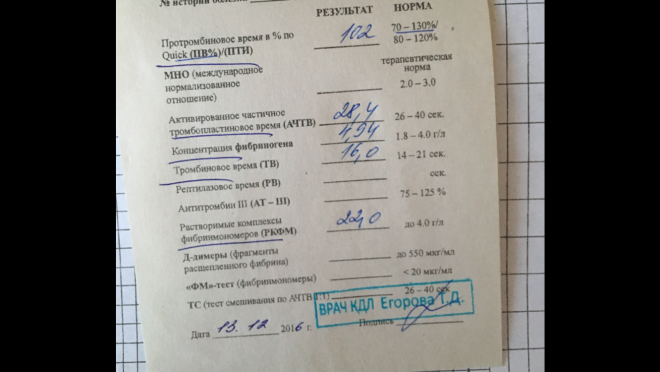 № истории
РЕЗУЛЬТАТ НОРМА
Протромбиновое время в % по 102 70 – 130%/
Quick (ПВ%)/(ПТИ) 80 – 120%
МНО (международное терапевтическая
нормализованное норма
отношение) 2.0 – 3.0
Активированное частичное 28,4
тромбопластиновое время (АЧТВ) 26 – 40 сек.
Концентрация фибриногена 4,94 1.8 – 4.0 г/л
Тромбиновое время (ТВ) 16,0 14 – 21 сек.
Рептилазовое время (РВ) сек.
Антитромбин III (АТ – III) 75 – 125 %
Растворимые комплексы 22,0
фибринмономеров (РКФМ) до 4.0 г/л
Д-димеры (фрагменты до 550 мкг/мл
расщепленного фибрина)
«ФМ»-тест (фибринмономеры) < 20 мкг/мл
ТС (тест смешивания по АЧТВ 1:1) 26 – 40 сек
ВРАЧ КДЛ Егорова Т.Д.
Дата 13. 12 2016 г. Подпись